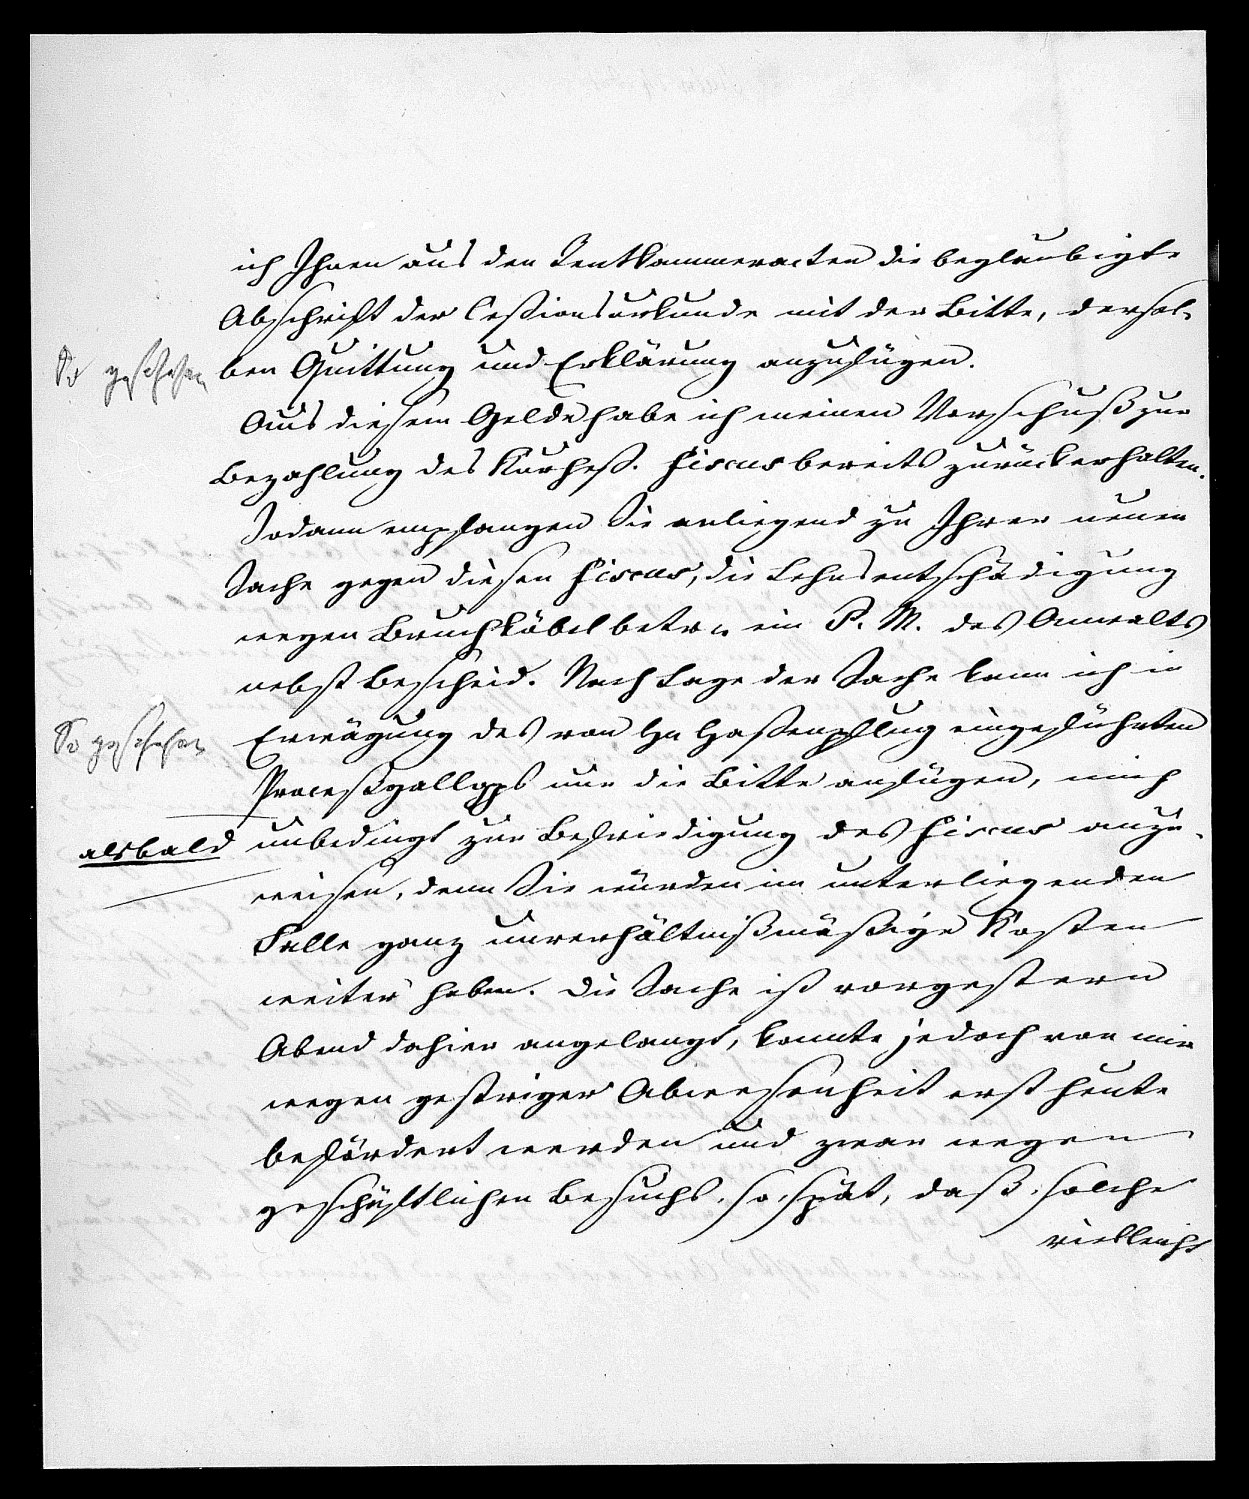 ich Ihnen aus den Rentkammeracten die beglaubigte
Abschrift der Cessionsurkunde mit der Bitte, dersel-
So geschehen
ben Quittung und Erklärung anzufügen.
Aus diesem Gelde habe ich meinen Vorschuß zur
Bezahlung des Kurheß. Fiscus bereits zurückerhalten.
Sodann empfangen Sie anliegend zu Ihrer neuen
Sache gegen diesen Fiscus, die Lehnsentschädigung
wegen Bruchköbel betr. ein P. M. des Anwalts
nebst Bescheid. Nach Lage der Sache kann ich in
So geschehen
Erwägung des von Hn Haßenpflug eingeführten
Proceßgallopps nur die Bitte anfügen, mich
alsbald
unbedingt zur Befriedigung des Fiscus anzu-
weisen, denn Sie würden im unterliegenden
Falle ganz unverhältnißmäßige Kosten
weiter haben. Die Sache ist vorgestern
Abend dahier angelangt, konnte jedoch von mir
wegen gestriger Abwesenheit erst heute
befördert werden und zwar wegen
geschäftlichen Besuchs so spät, daß solche
vielleicht